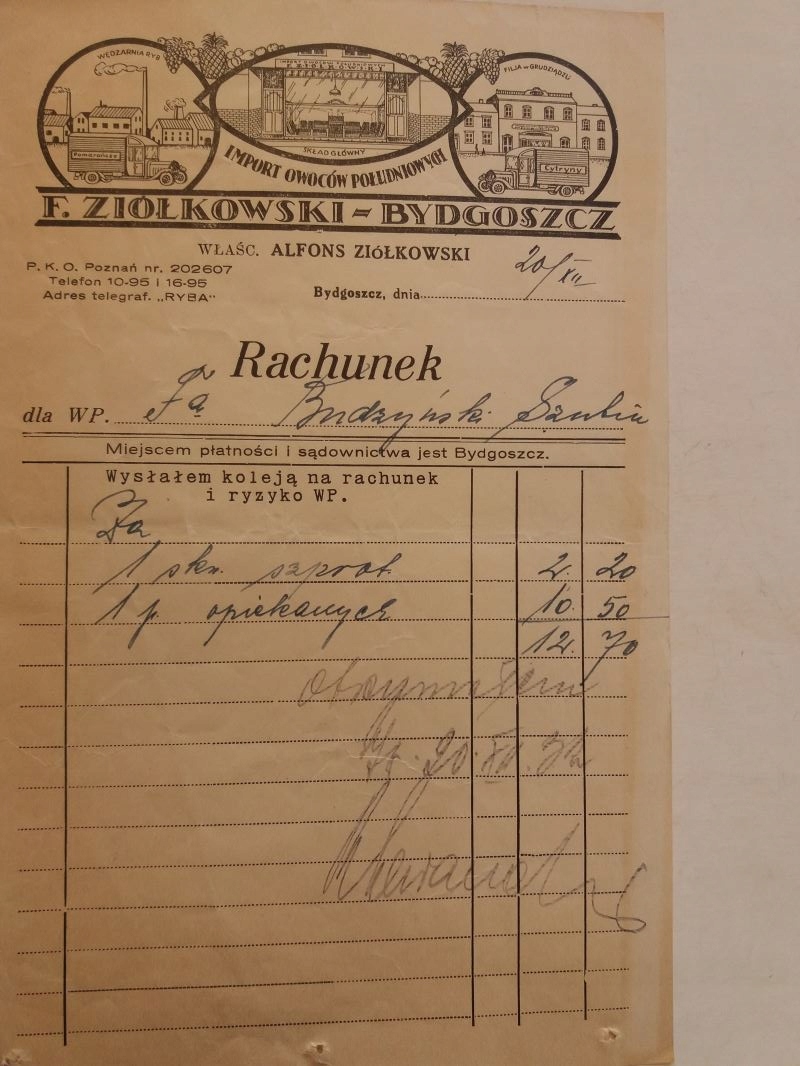 WĘDZARNIA RYB
IMPORT OWOCÓW POŁUDNIOWYCH
F. ZIÓŁKOWSKI
FILJA w GRUDZIĄDZU
Pomarańcze
SKŁAD GŁÓWNY
Cytryny
IMPORT OWOCÓW POŁUDNIOWYCH
F. ZIÓŁKOWSKI - BYDGOSZCZ
WŁAŚC. ALFONS ZIÓŁKOWSKI
P. K. O. Poznań nr. 202607
Telefon 10-95 i 16-95
Adres telegraf. „RYBA"
Bydgoszcz, dnia 20/XII
Rachunek
dla WP. Fa Budzyński Szubin
Miejscem płatności i sądownictwa jest Bydgoszcz.
Wysłałem koleją na rachunek
i ryzyko WP.
Za
1 skr. szprot. 2. 20
1 p. opiekanych 10. 50
12. 70
Otrzymałem
20. XII. 32